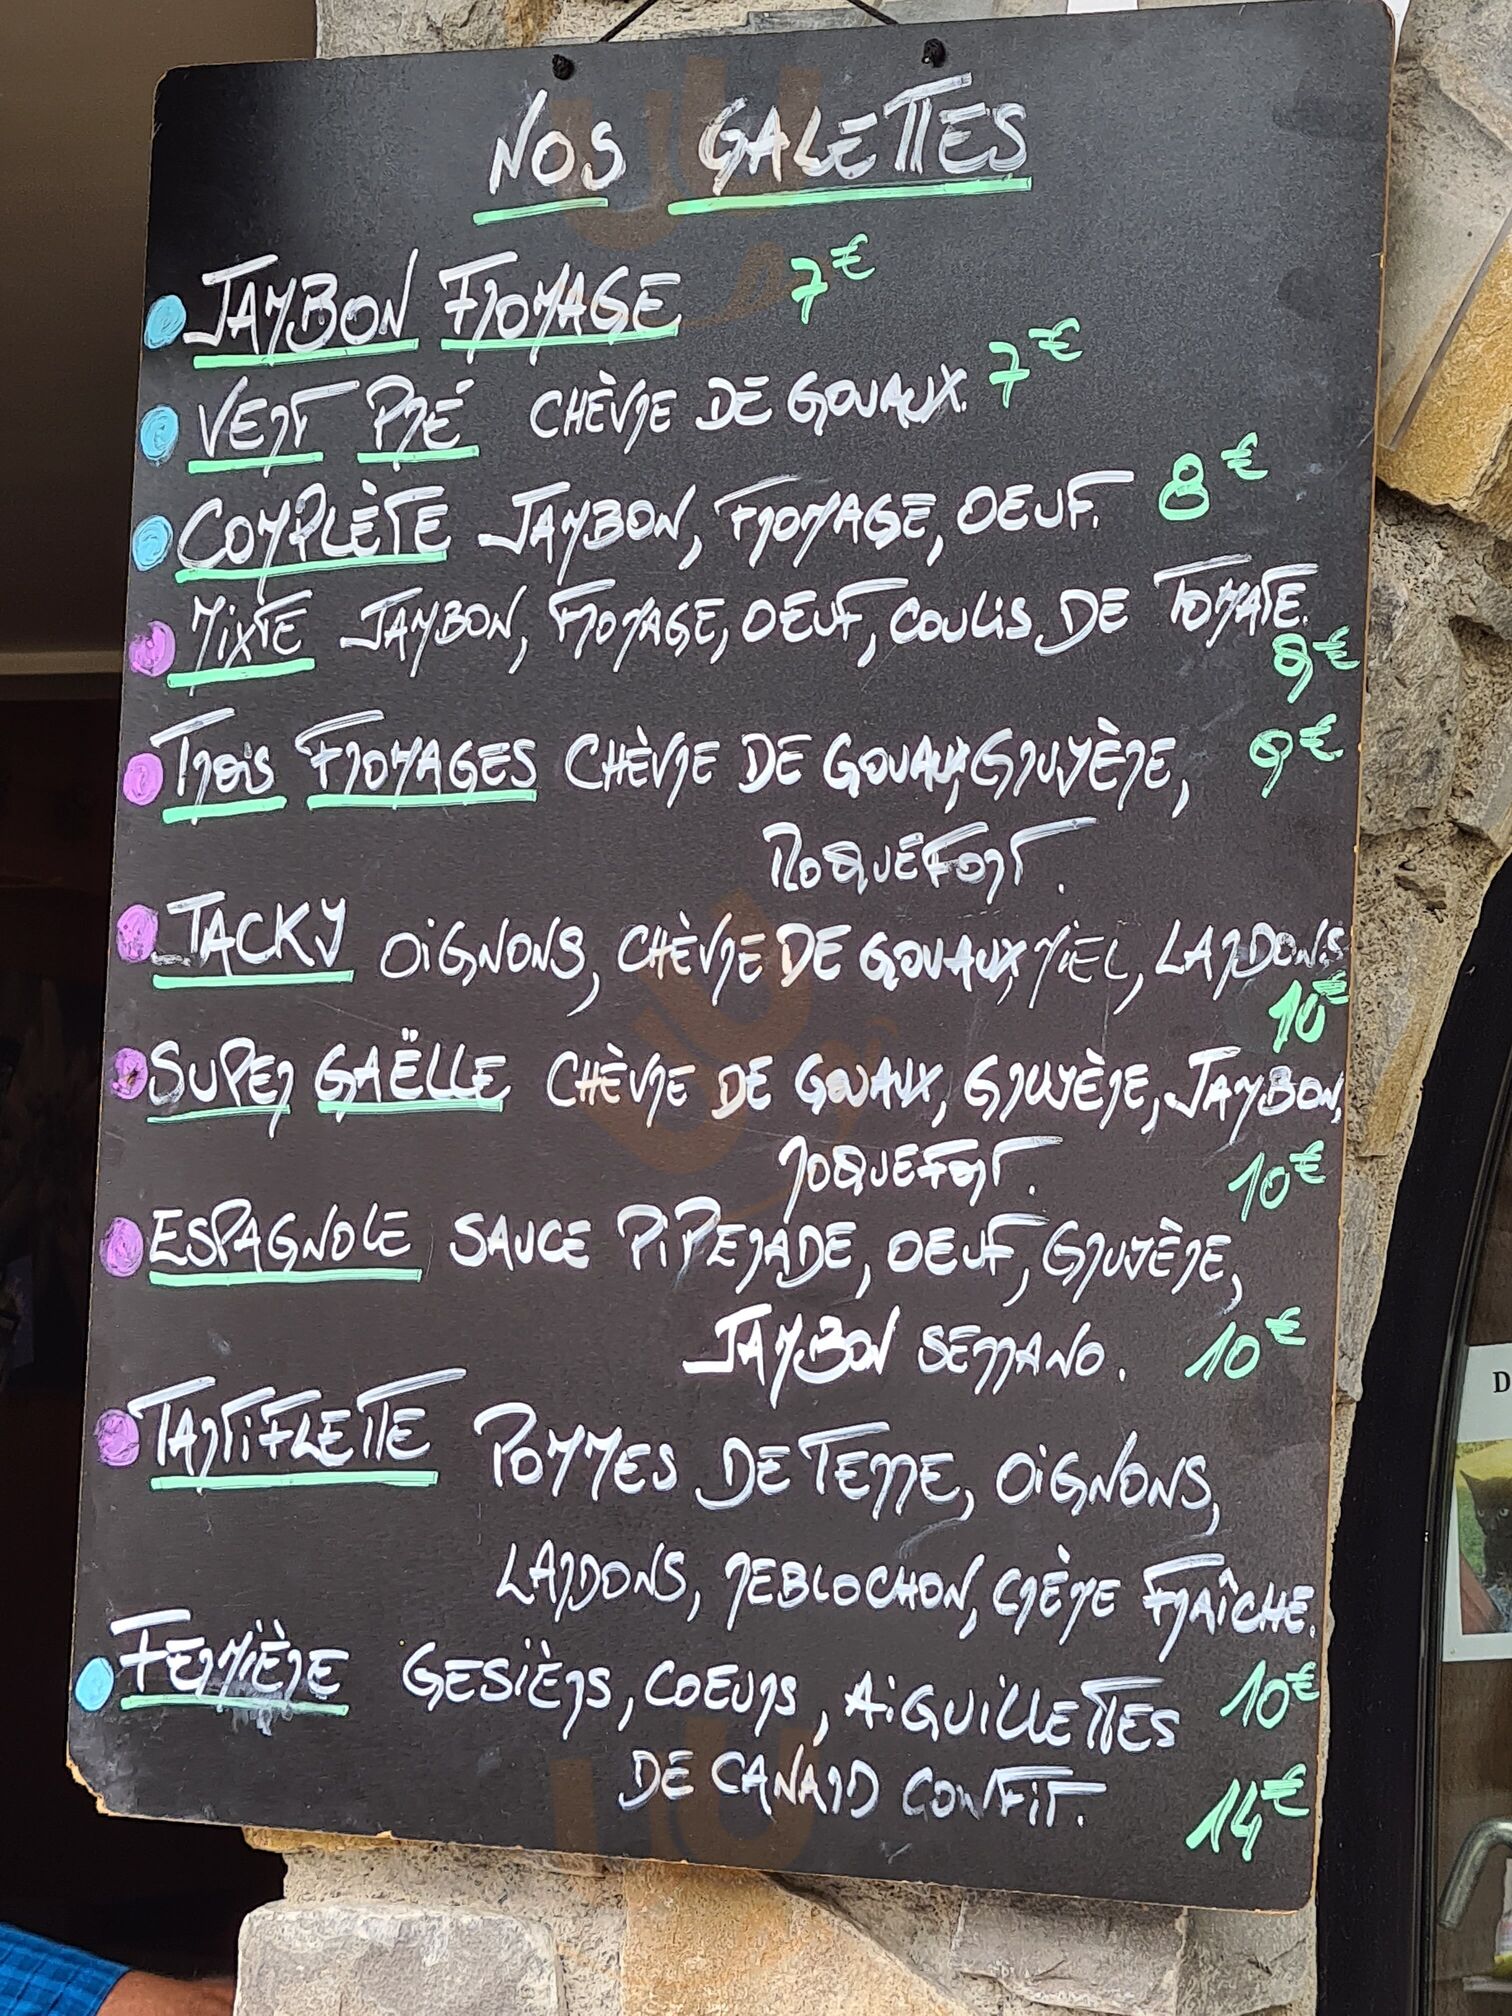 NOS GALETTES
JAMBON FROMAGE 7€
VERT PRÉ CHÈVRE DE GOUAUX. 7€
COMPLÈTE JAMBON, FROMAGE, OEUF. 8€
MIXTE JAMBON, FROMAGE, OEUF, COULIS DE TOMATE.
9€
TROIS FROMAGES CHÈVRE DE GOUAUX, GRUYÈRE, 9€
ROQUEFORT.
TACKY OIGNONS, CHÈVRE DE GOUAUX, MIEL, LARDONS
10€
SUPER GAËLLE CHÈVRE DE GOUAUX, GRUYÈRE, JAMBON,
ROQUEFORT. 10€
ESPAGNOLE SAUCE PIPERADE, OEUF, GRUYÈRE,
JAMBON SERRANO. 10€
TARTIFLETTE POMMES DE TERRE, OIGNONS,
LARDONS, REBLOCHON, CRÈME FRAÎCHE.
10€
FERMIÈRE GESIÈRS, COEURS, AIGUILLETTES
DE CANARD CONFIT. 14€
D